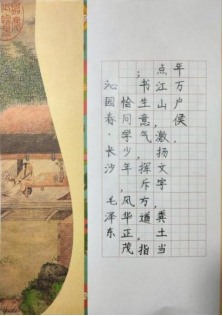 沁园春·长沙 毛泽东
恰同学少年,风华正茂
;书生意气,挥斥方遒,指
点江山,激扬文字,粪土当
年万户侯.